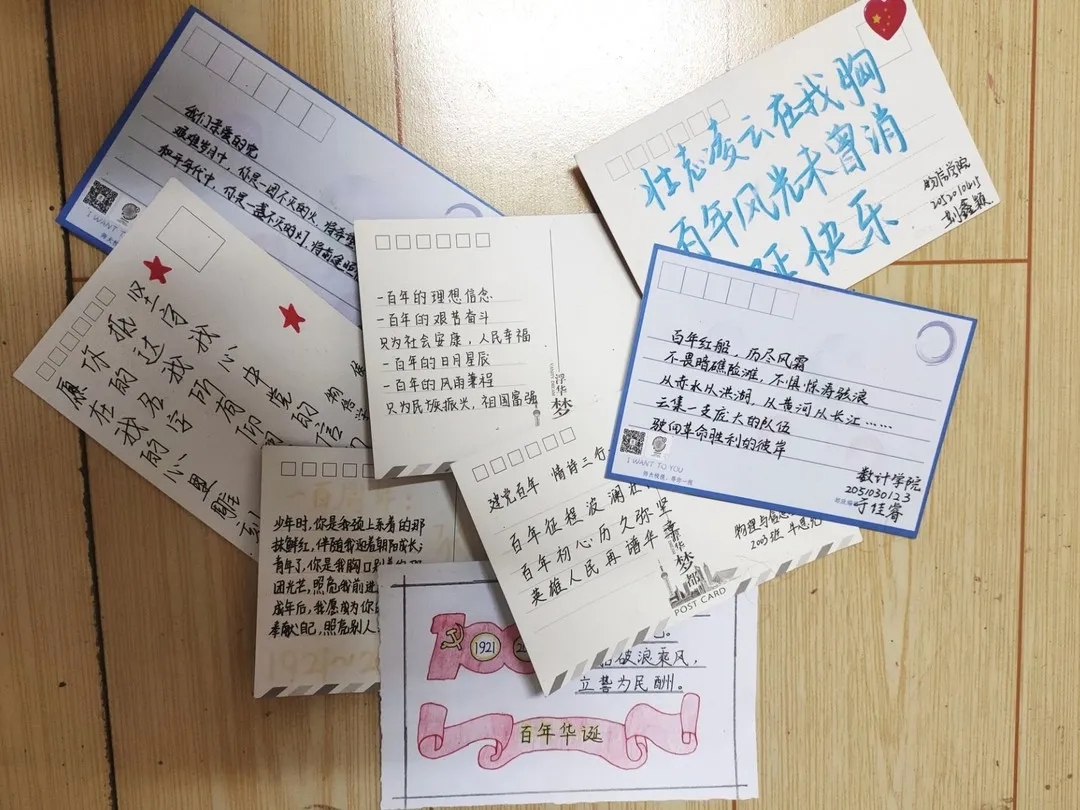 我们亲爱的党
艰难岁月中，你是一团不灭的火，将希望
和平年代中，你是一盏不灭的灯，将前途照
I WANT
壮志凌云在我胸
百年风光未曾消
快乐
物信学院
刘鑫颖
坚守
我心中党的信
抵达我所
你的名字
愿在我的心里
一百年的理想信念
一百年的艰苦奋斗
只为社会安康，人民幸福
一百年的日月星辰
一百年的风雨兼程
只为民族振兴，祖国富强
浮华
梦
百年红船，历尽风霜
不畏暗礁险滩，不惧惊涛骇浪
从赤水从洪湖，从黄河从长江……
云集一支庞大的队伍
驶向革命胜利的彼岸
I WANT TO YOU
数计学院
2051030123
于佳睿
少年时，你是我颈上系着的那
抹鲜红，伴随我迎着朝阳成长；
青年了，你是我胸口别着的那
团光芒，照亮我前进
成年后，我愿成为你
奉献自己，照亮别人
1921~2
建党百年 情诗三行
百年征程波澜
百年初心历久弥坚
英雄人民再谱华章
浮华
梦
POST CARD
2003班
1921
破浪乘风，
立誓为民酬。
百年华诞